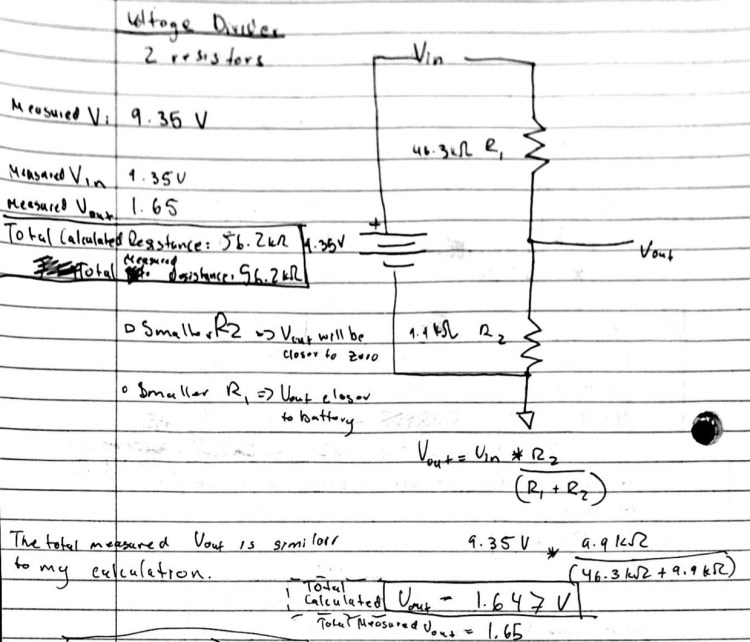 Voltage Divider
2 resistors
Vin
Measured Vi 9.35 V
46.3kΩ R1
Measured Vin 9.35V
Measured Vout 1.65
Total Calculated Resstance: 56.2kΩ
9.35V
Vout
Total Measured Resistance: 56.2kΩ
Smaller R2 => Vout will be
closer to zero
9.9kΩ R2
Smaller R1 => Vout closer
to battery
Vout = Vin * R2
(R1 + R2)
The total measured Vout is similar
to my calculation.
9.35 V * 9.9 kΩ
(46.3kΩ + 9.9kΩ)
Total
Calculated Vout = 1.647 V
Total Measured Vout = 1.65